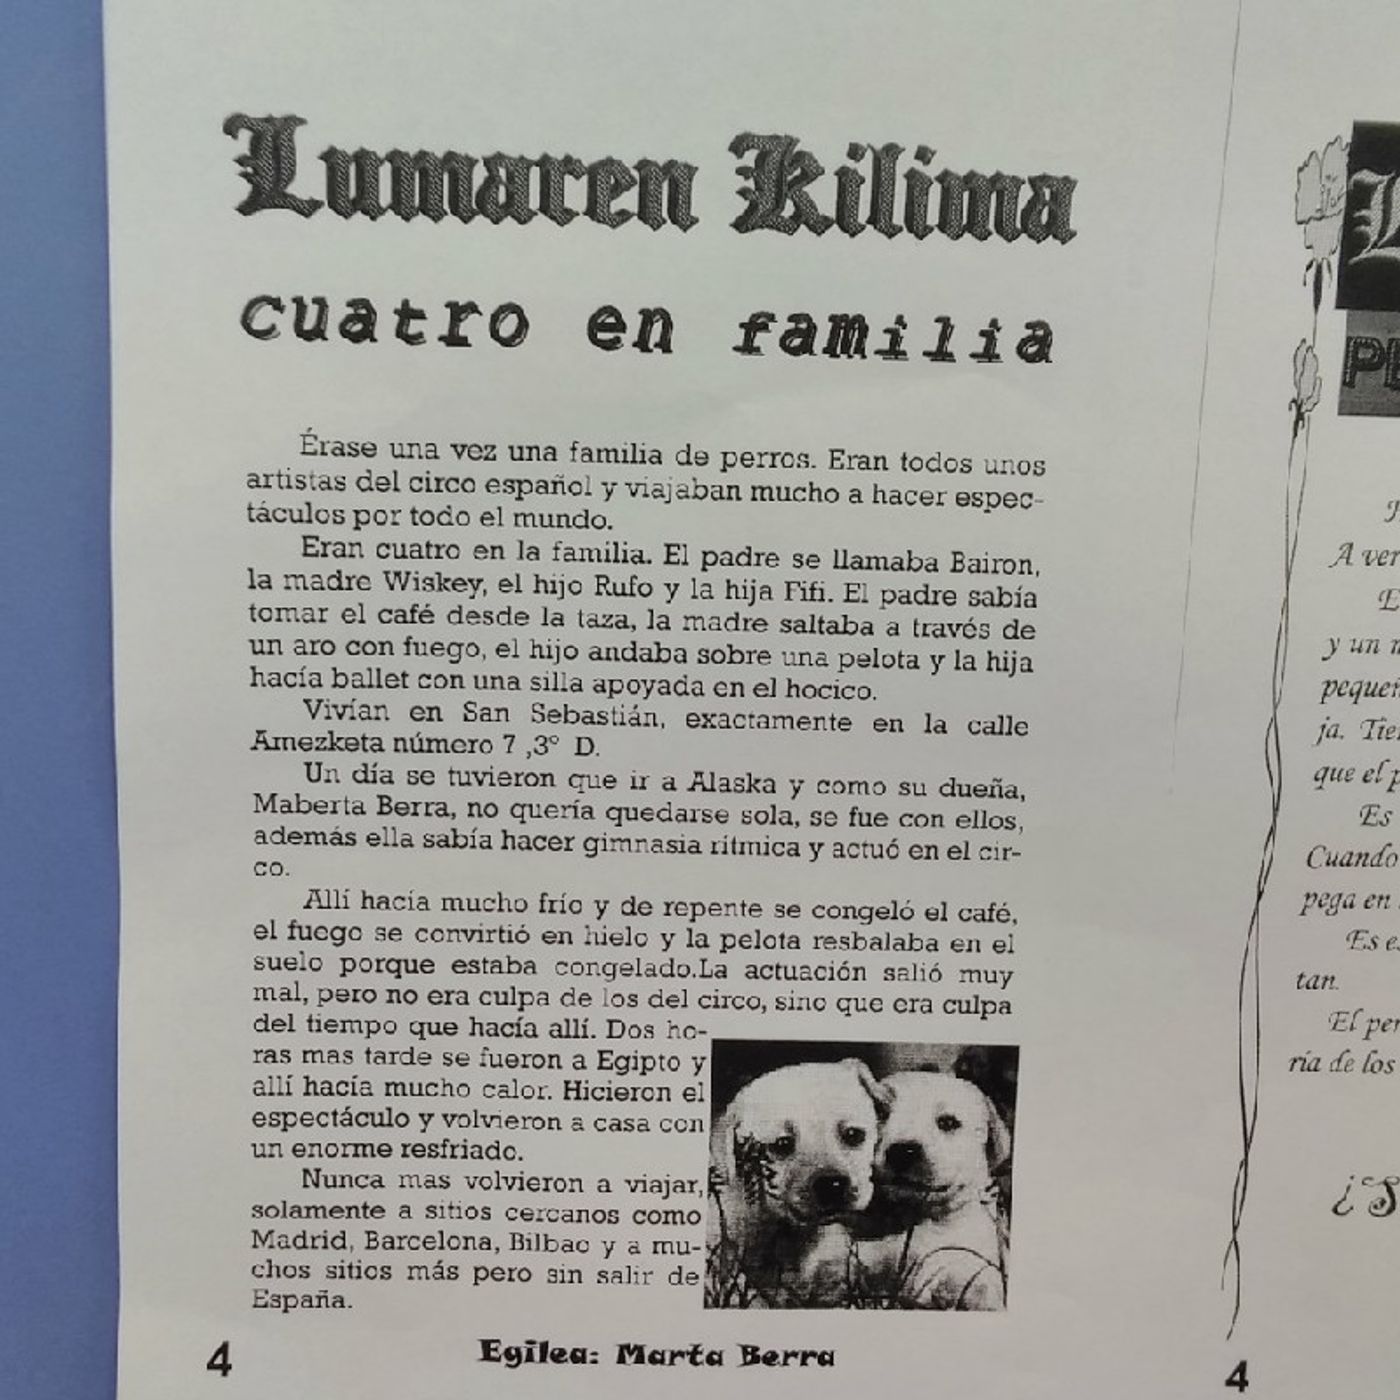 Lumaren Kilima
cuatro en familia
Érase una vez una familia de perros. Eran todos unos
artistas del circo español y viajaban mucho a hacer espec-
táculos por todo el mundo.
Eran cuatro en la familia. El padre se llamaba Bairon,
la madre Wiskey, el hijo Rufo y la hija Fifi. El padre sabía
tomar el café desde la taza, la madre saltaba a través de
un aro con fuego, el hijo andaba sobre una pelota y la hija
hacía ballet con una silla apoyada en el hocico.
Vivían en San Sebastián, exactamente en la calle
Amezketa número 7 ,3º D.
Un día se tuvieron que ir a Alaska y como su dueña,
Maberta Berra, no quería quedarse sola, se fue con ellos,
además ella sabía hacer gimnasia rítmica y actuó en el cir-
co.
Allí hacía mucho frío y de repente se congeló el café,
el fuego se convirtió en hielo y la pelota resbalaba en el
suelo porque estaba congelado.La actuación salió muy
mal, pero no era culpa de los del circo, sino que era culpa
del tiempo que hacía allí. Dos ho-
ras mas tarde se fueron a Egipto y
allí hacía mucho calor. Hicieron el
espectáculo y volvieron a casa con
un enorme resfriado.
Nunca mas volvieron a viajar,
solamente a sitios cercanos como
Madrid, Barcelona, Bilbao y a mu-
chos sitios más pero sin salir de
España.
Egilea: Marta Berra
4
A ver
y un
pequeñ
ja. Tie
que el p
Es
Cuando
pega en
Es es
tan.
El per
ría de los
¿S
4